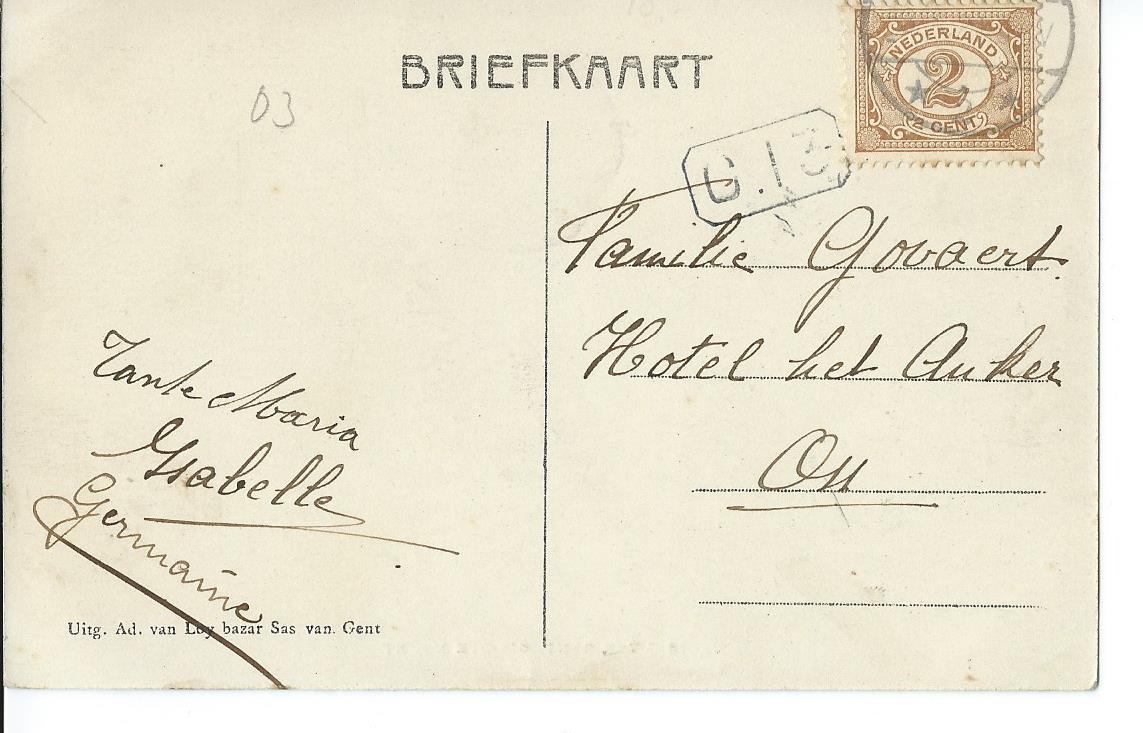 BRIEFKAART
03
NEDERLAND
2
2 CENT 2
C.I3
Familie Govaert
Hotel het Anker
Oss
Tante Maria
Ysabelle
Germaine
Uitg. Ad. van Loy bazar Sas van Gent